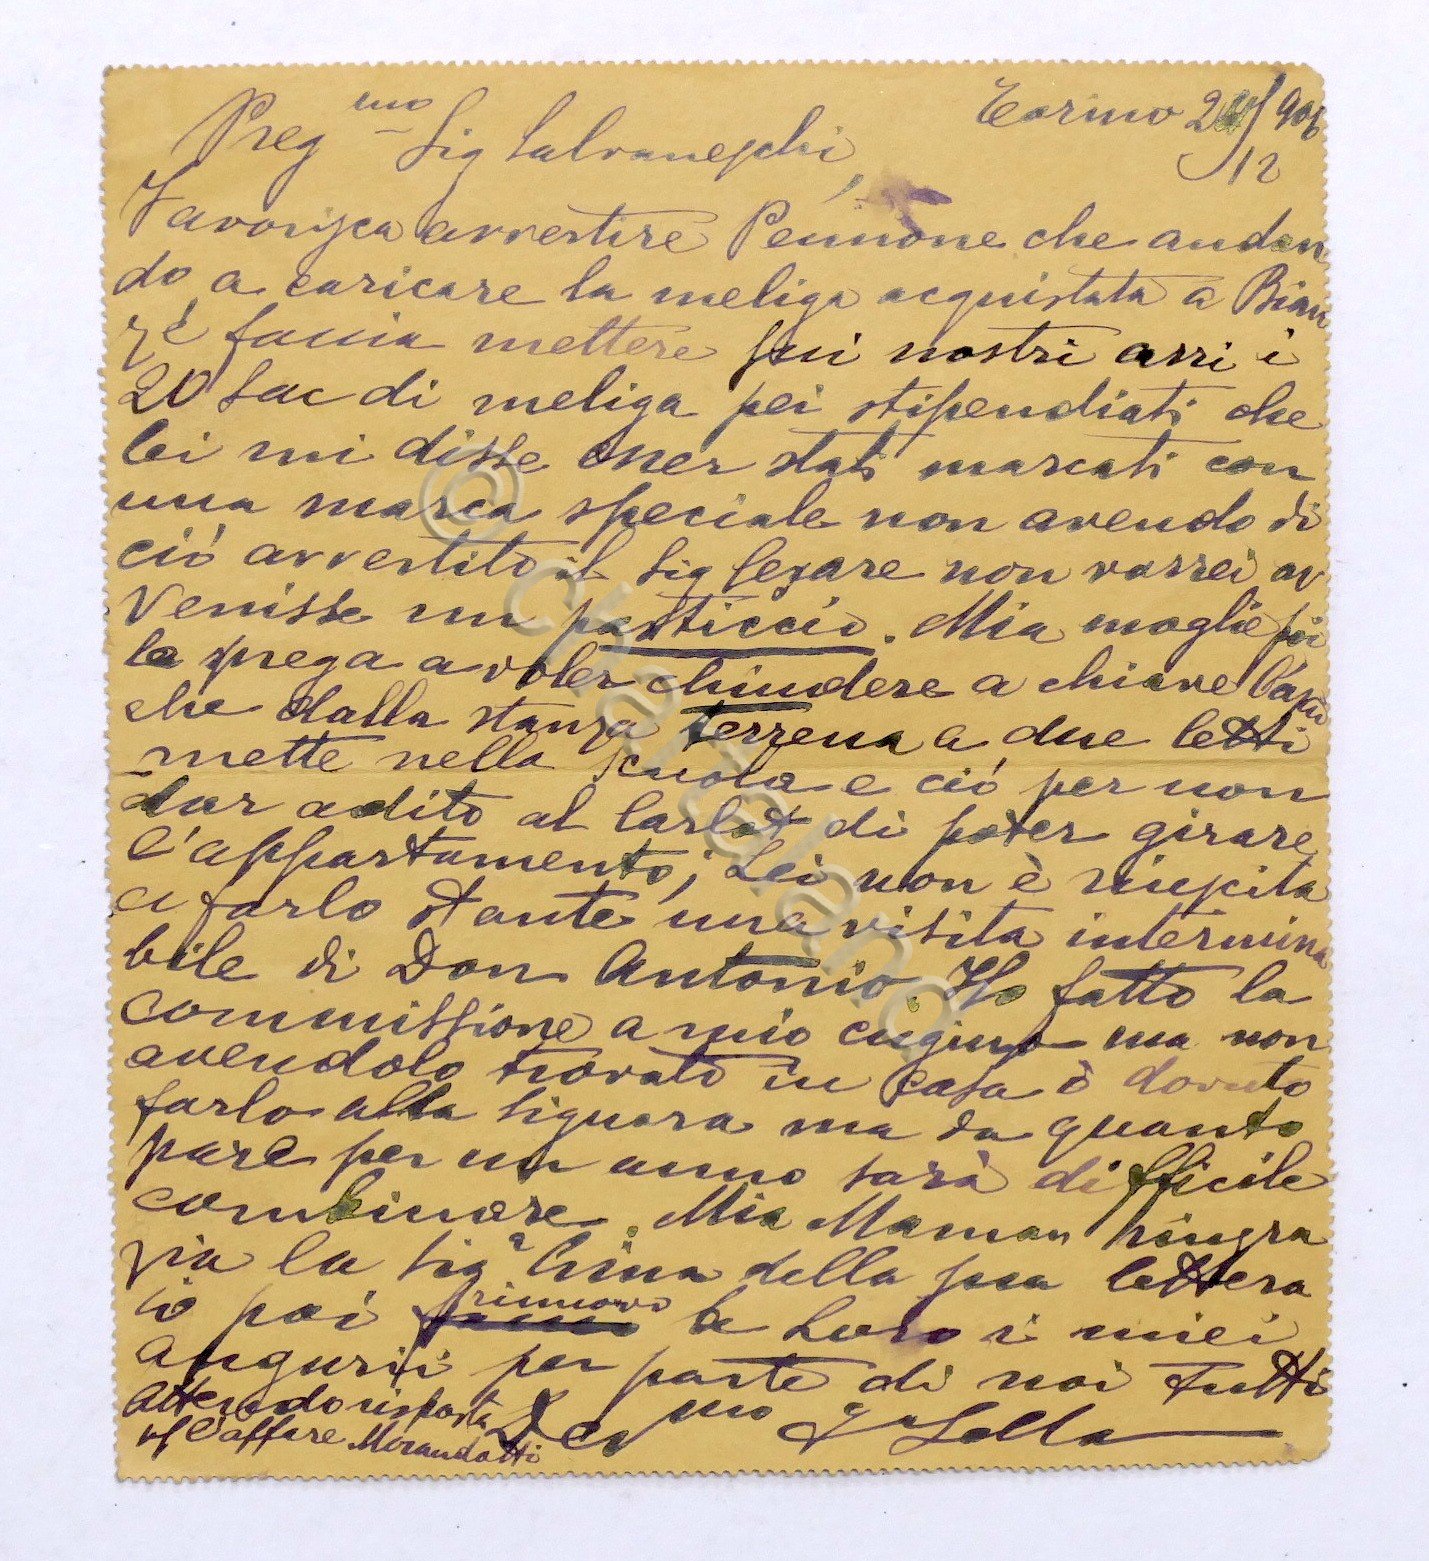 Torino 2 /90
12
Preg mo Sig Salvaneschi,
Favorisca avvertire Pennone che andan
do a caricare la meliga acquistata a Bian
zé faccia mettere sui nostri carri i
20 sac di meliga pei stipendiati che
lei mi disse esser stati marcati con
una marca speciale non avendo di
ciò avvertito il Sig Cesare non vorrei av
venisse un pasticcio. Mia moglie poi
la prega a voler chiudere a chiave l'
che dalla stanza terrena a due letti
mette nella scuola e ciò per non
dar adito al di poter girare
l'appartamento; Lei non è riuscita
a farlo stante una visita intermina
bile di Don Antonio. Ho fatto la
commissione a mio cugino ma non
avendolo trovato in casa ò dovuto
farlo alla signora ma da quanto
pare per un anno sarà difficile
combinare. Mia Maman ringra
zia la Sig a della sua lettera
io poi rinnovo a Loro i miei
augurii per parte di noi tutti
Attendo risposta Dev mo Sella
s/ l'affare Morandotti
© chartaland